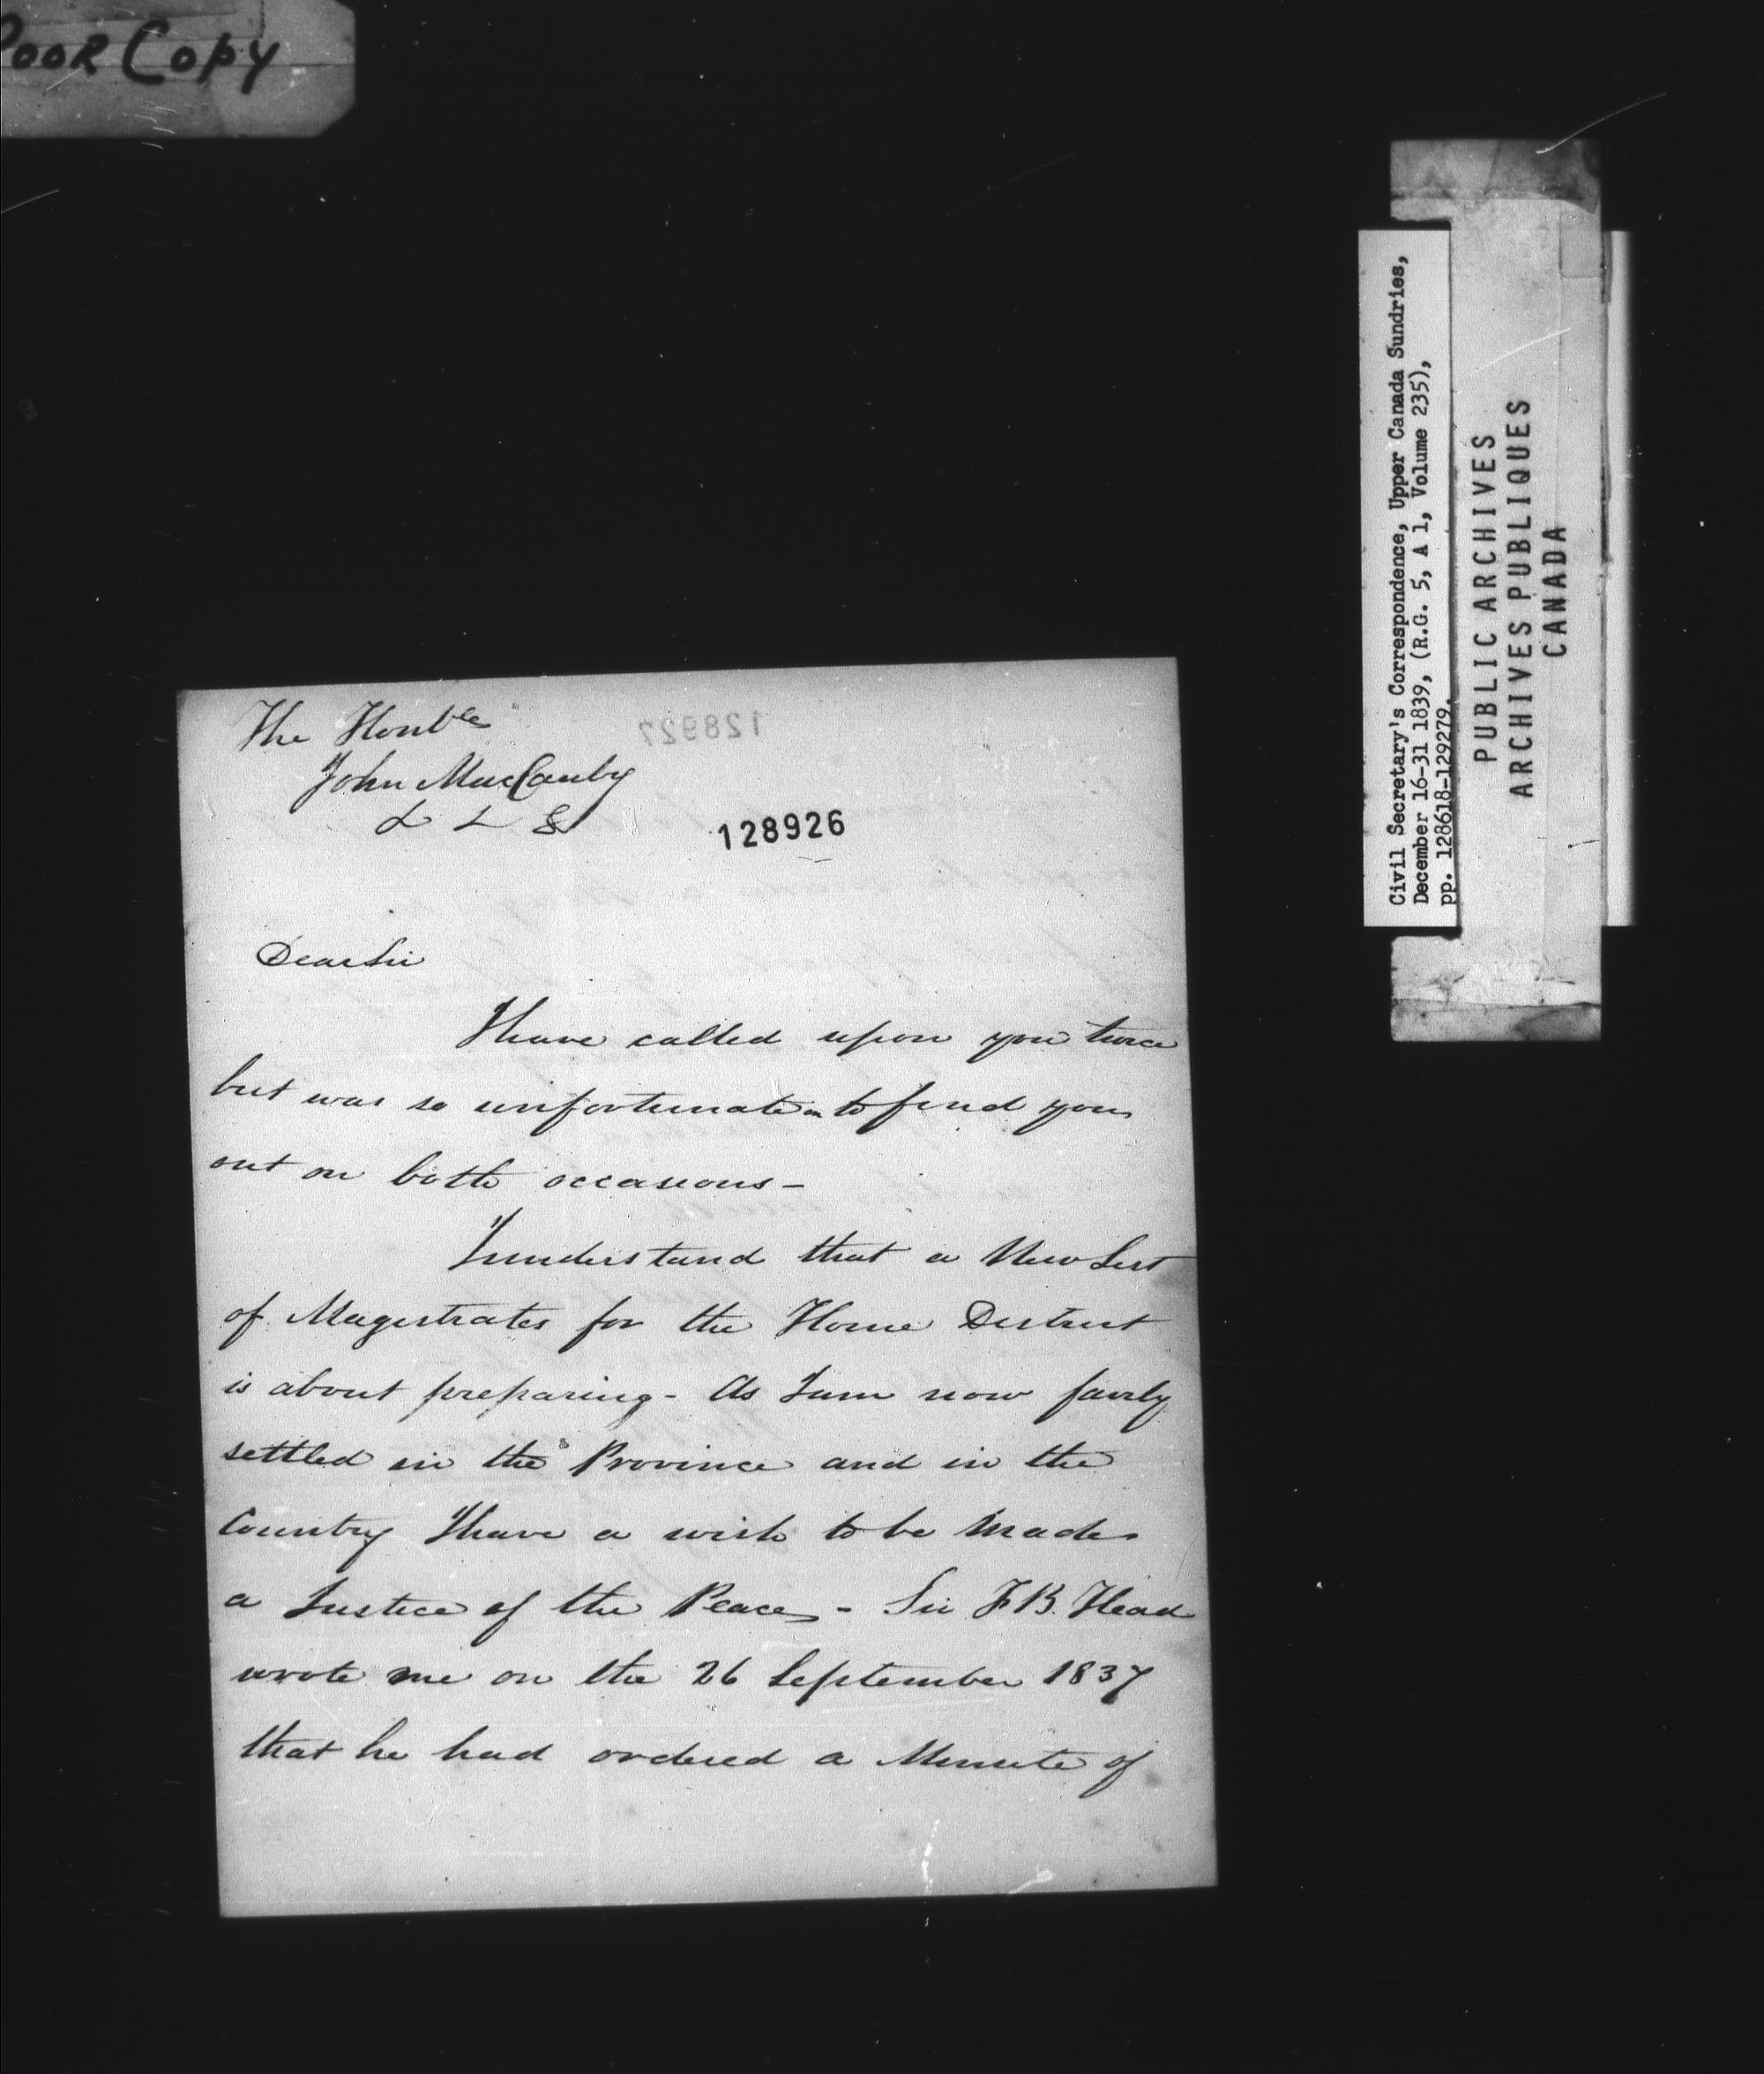 Poor Copy
The Honble
John MacCauley
128927
128926
Dear Sir
I have called upon you twice
but was so unfortunate as to find you
out on both occasions -
I understand that a New List
of Magistrates for the Home District
is about preparing - As I am now fairly
settled in the Province and in the
Country I have a wish to be made
a Justice of the Peace - Sir F B. Head
wrote me on the 26 September 1837
that he had ordered a Minute of
Civil Secretary's Correspondence, Upper Canada Sundries,
December 16-31 1839, (R.G. 5, A 1, Volume 235),
pp. 128618-129279.
PUBLIC ARCHIVES
ARCHIVES PUBLIQUES
CANADA